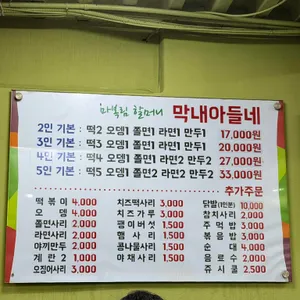 마복림 할머니 막내아들네
2인 기본 : 떡2 오뎅1 쫄면1 라면1 만두1 17,000원
3인 기본 : 떡3 오뎅1 쫄면1 라면1 만두1 20,000원
4인 기본 : 떡4 오뎅1 쫄면1 라면2 만두2 27,000원
5인 기본 : 떡5 오뎅2 쫄면1 라면2 만두2 33,000원
추가주문
떡볶이 4,000 치즈떡사리 3,000 닭발(1인분) 10,000
오뎅 4,000 치즈가루 3,000 참치사리 2,000
쫄면사리 2,000 팽이버섯 1,500 주먹밥 3,000
라면사리 2,000 햄사리 1,500 볶음밥 3,000
야끼만두 2,000 콩나물사리 1,500 순대 4,000
계란2 1,000 야채사리 1,500 음료수 2,000
오징어사리 3,000 쥬시쿨 2,500